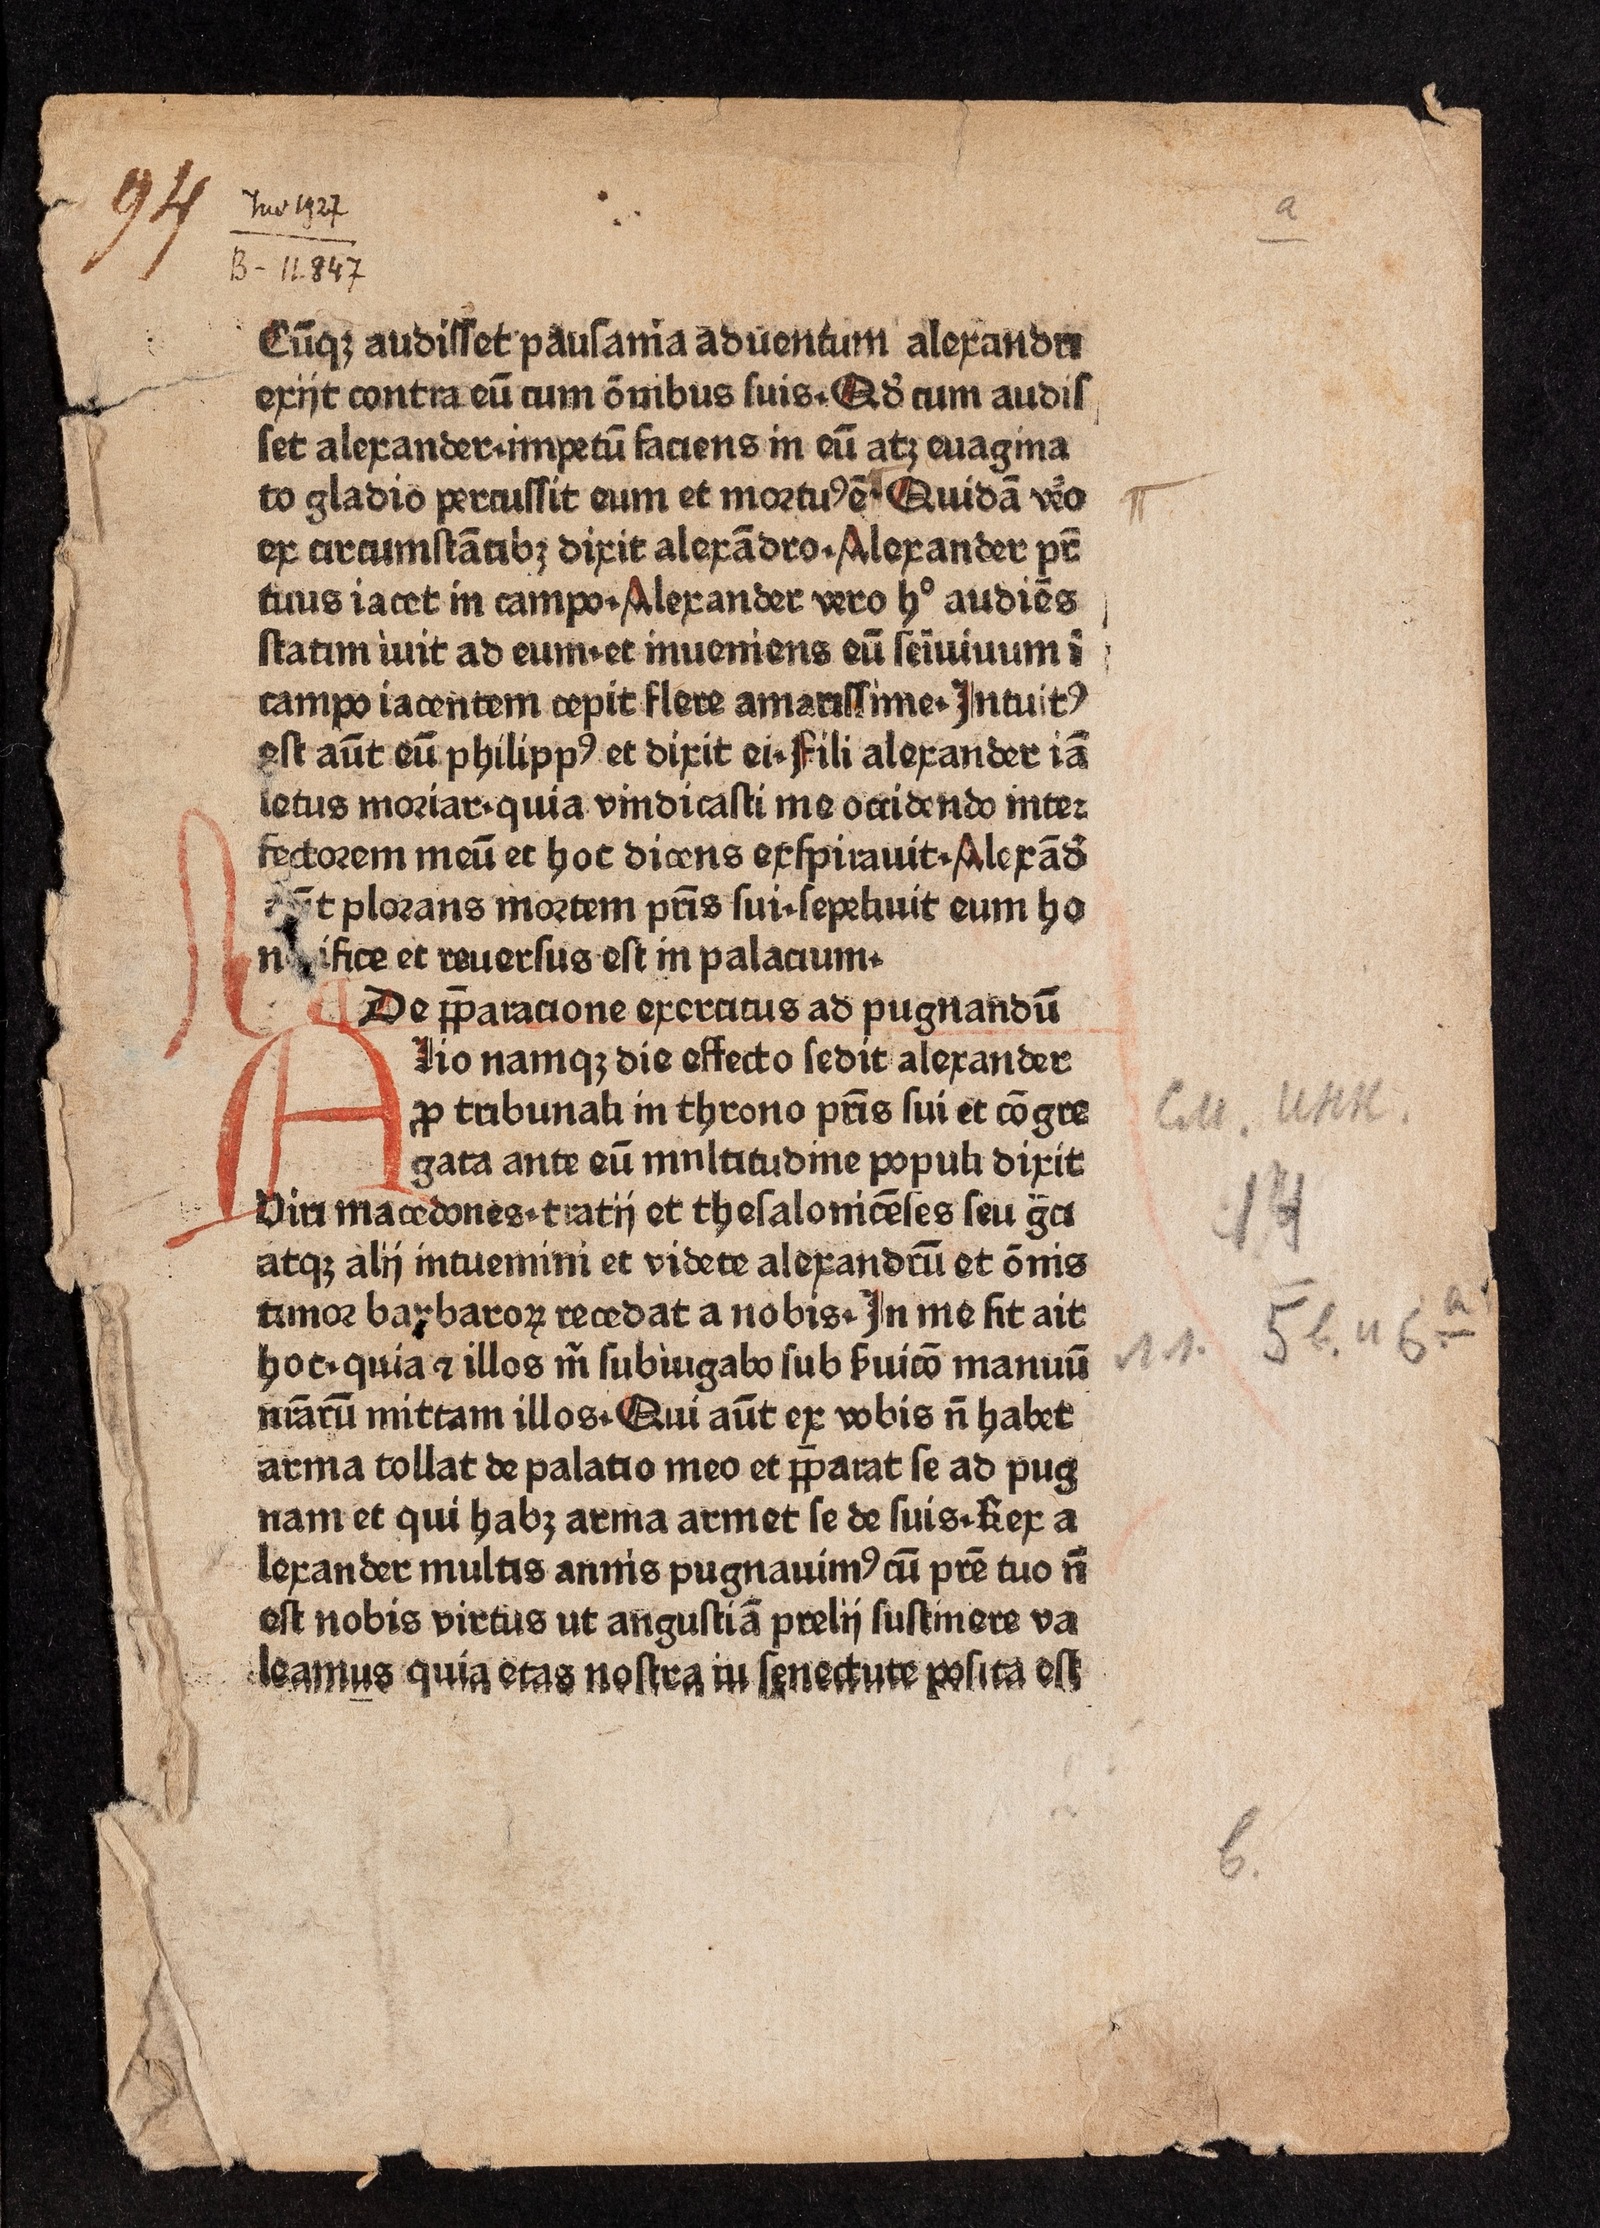 94
Inv 1927
B - 11.847
a
Cūqꝫ audiſſet pauſania aduentum alexandri
exijt contra eū cum ōnibus ſuis. Qď cum audiſ
ſet alexander. impetū faciens in eū atꝫ euagina
to gladio percuſſit eum et moꝛtuꝰ ē. Quidā ve͛o
ex circumſtātibꝫ dixit alexādro. Alexander pr̄
tuus iacet in campo. Alexander vero hº audiēs
ſtatim iuit ad eum. et inueniens eū ſēiuiuum ī
campo iacentem cepit flere amariſſime. Intuitꝰ
eſt aūt eū philippꝰ et dixit ei. Fili alexander iā
letus moꝛiar. quia vindicaſti me occidendo inteꝛ
fectoꝛem meū et hoc dicens exſpirauit. Alexād͛
aūt ploꝛans moꝛtem pr̄is ſui. ſepeliuit eum ho
n ifice et reuerſus eſt in palacium.
De p̄paracione exercitus ad pugnandū
A lio namqꝫ die effecto ſedit alexander
ꝓ tribunali in throno pr̄is ſui et cōgre
gata ante eū mnltitudine populi dixit
Viri macedones. tratij et theſalonicēſes ſeu g̈ci
atqꝫ alij intuemini et videte alexandrū et ōnis
timoꝛ barbaroꝝ recedat a nobis. In me fit ait
hoc. quia ⁊ illos m̄ ſubiugabo ſub ẜuicō manuū
nr̄arū mittam illos. Qui aūt ex vobis n̄ habet
arma tollat de palatio meo et p̄parat ſe ad pug
nam et qui habꝫ arma armet ſe de ſuis. Rex a
lexander multis annis pugnauimꝰ cū pr̄e tuo n̄
eſt nobis virtus ut anguſtiā prelij ſuſtinere va
leamus quia etas noſtra iu ſenectute poſita eſt
π
См. инк.
14
лл. 5 в. и 6 а
в.